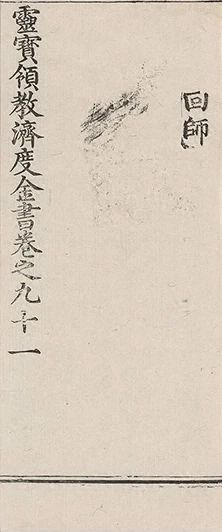 回師
靈寶領教濟度金書卷之九十一